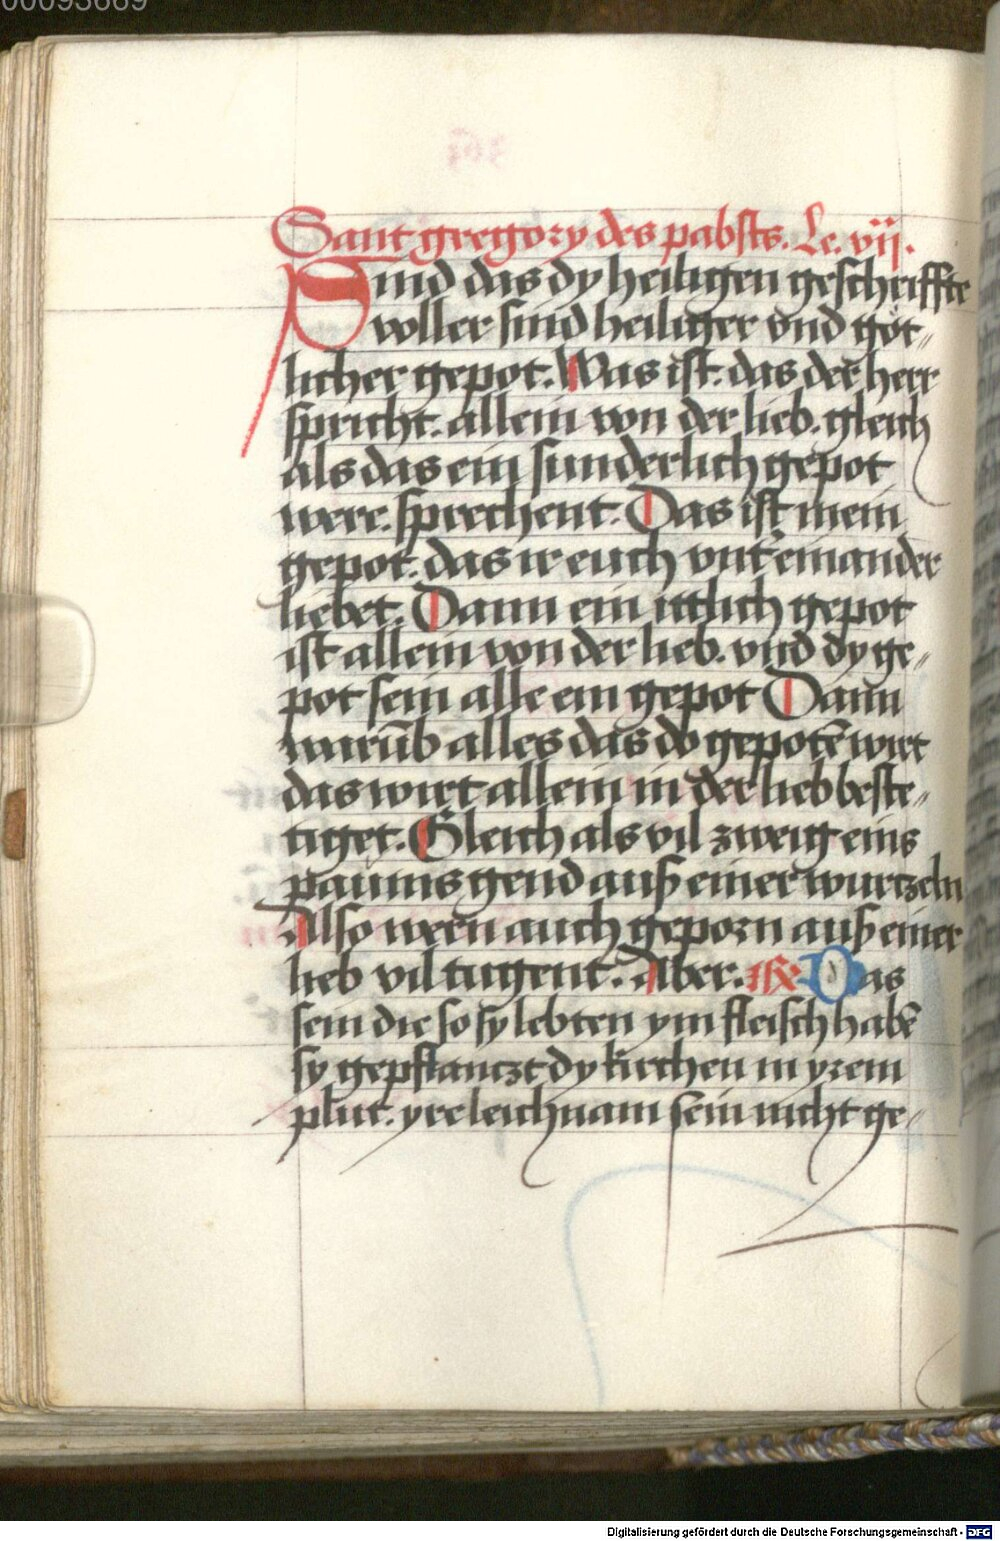 00093669
Sant gregory des pabsts. Le. vij.
Sind das dy heiligen geschriffte
voller sind heiliger vnd göt„
licher gepot. Was ist. das der herr
spricht. allein von der lieb. gleich
als das ein sunderlich gepot
were. sprechent. Das ist mein
gepot. das ir euch vnt̕einander
liebet. Dann ein itlich gepot
ist allein von der lieb. vnd dy ge„
pot sein alle ein gepot Dann
warūb alles das do gepotē wirt
das wirt allein in der lieb beste„
tiget. Gleich als vil zweig eins
paums gend auß einer wurtzeln
Also wern auch geporn auß einer
lieb vil tugent. Aber. Das
sein die so sy lebten ym fleisch habē
sy gepflanczt dy kirchen in yrem
plut. yre leichnam sein nicht ge„
Digitalisierung gefördert durch die Deutsche Forschungsgemeinschaft - DFG